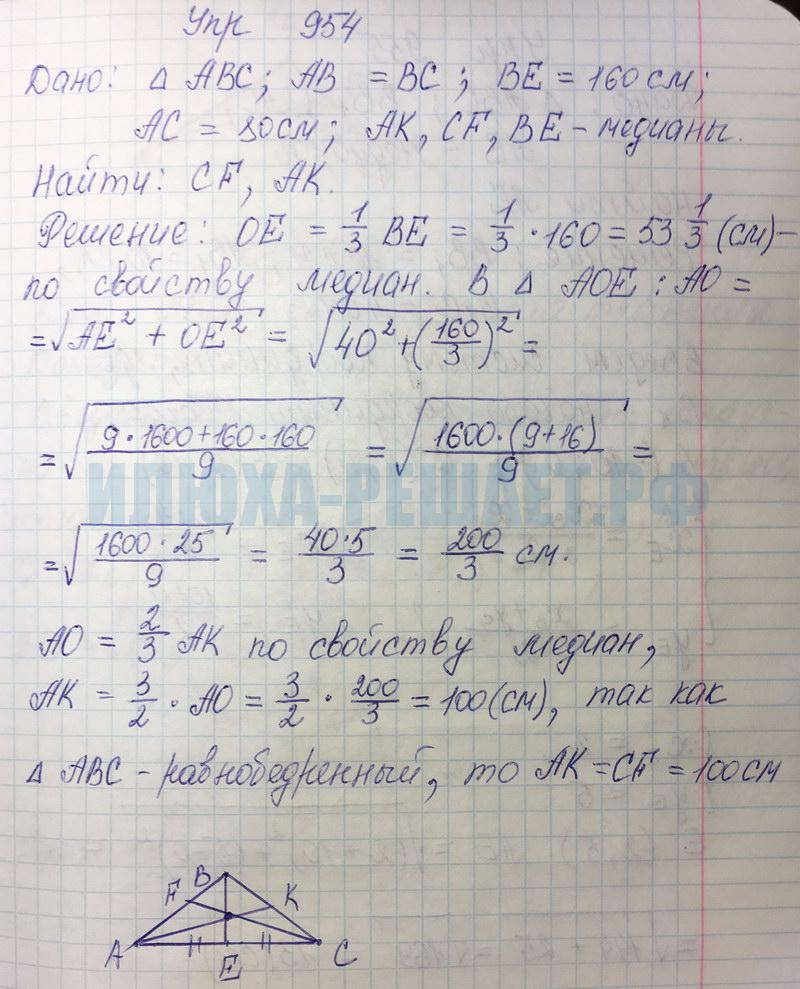 Упр 954
Дано: △ ABC; AB = BC; BE = 160 см;
AC = 80см; AK, CF, BE – медианы.
Найти: CF, AK.
Решение: OE = 1/3 BE = 1/3 · 160 = 53 1/3 (см) –
по свойству медиан. В △ AOE : AO =
= √(AE² + OE²) = √(40² + (160/3)²) =
= √((9·1600+160·160)/9) = √((1600·(9+16))/9) =
ИЛЮХА-РЕШАЕТ.РФ
= √((1600·25)/9) = (40·5)/3 = 200/3 см.
AO = 2/3 AK по свойству медиан,
AK = 3/2 · AO = 3/2 · 200/3 = 100(см), так как
△ ABC – равнобедренный, то AK = CF = 100см
B
F K
A E C